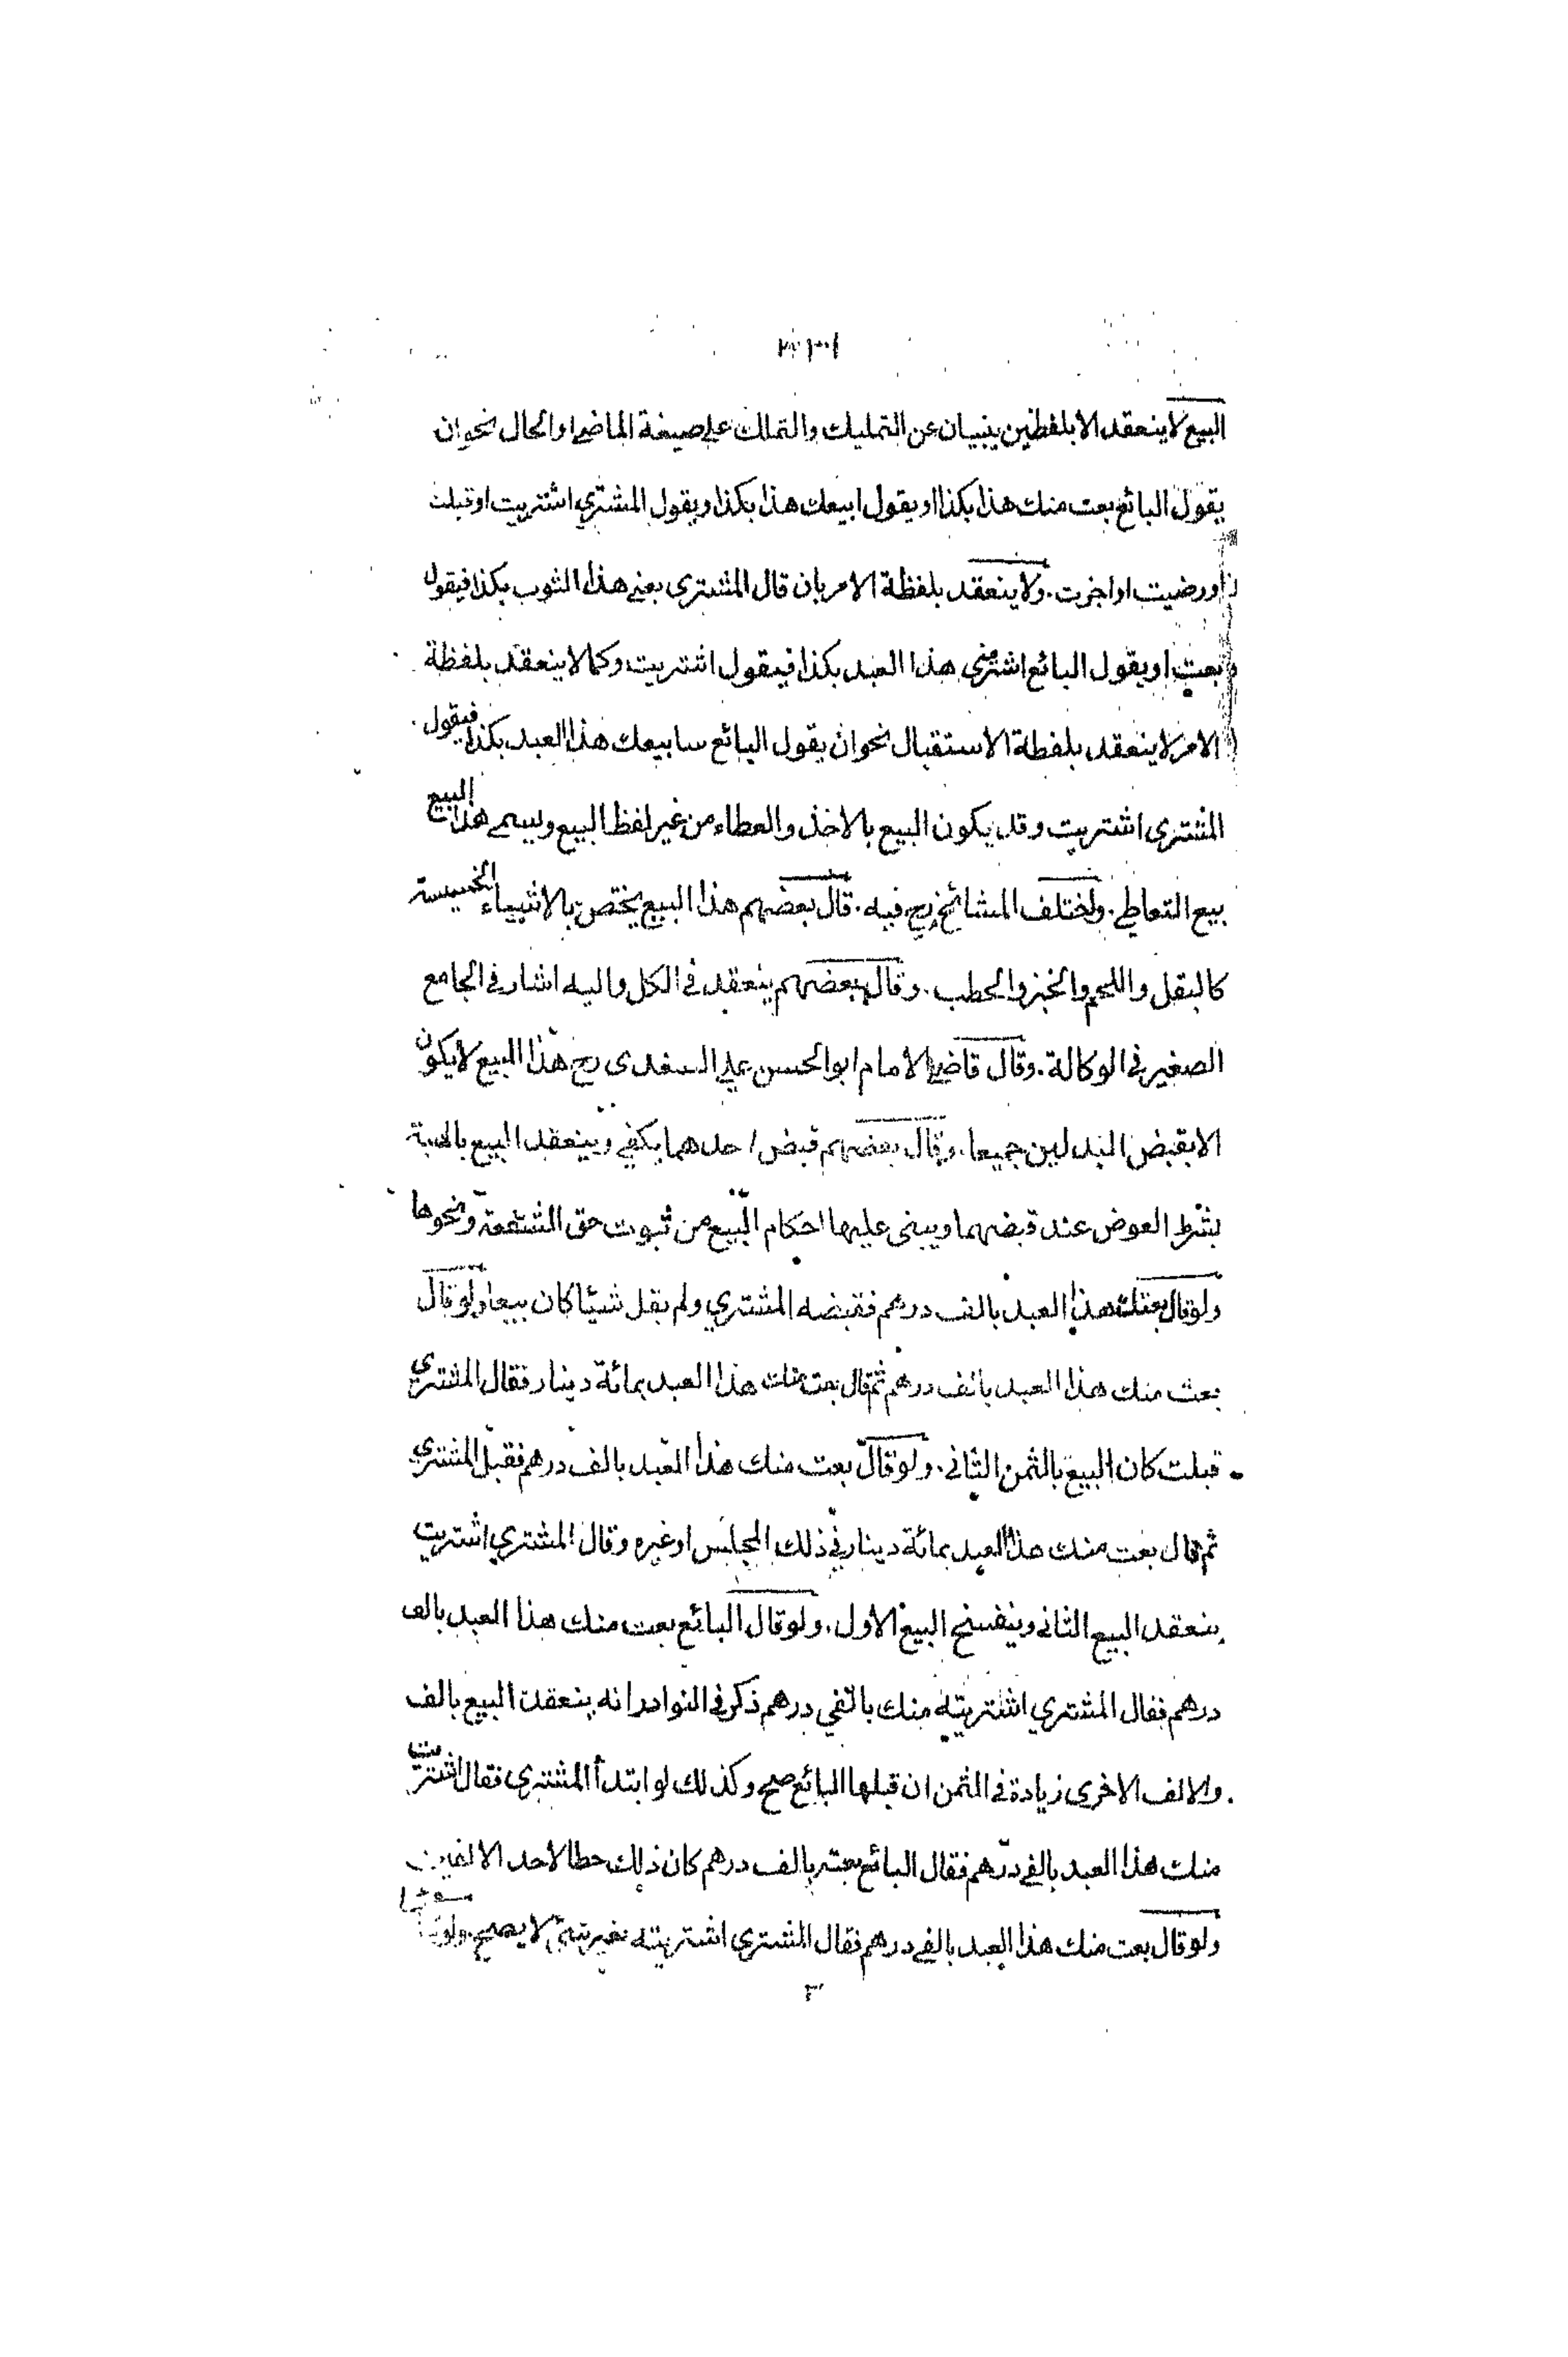 البيع لا ينعقد الا بلفظين ينبيان عن التمليك والتملك على صيغة الماضي او الحال نحو ان
يقول البائع بعت منك هذا بكذا او يقول ابيعك هذا بكذا ويقول المشتري اشتريت او قبلت
او رضيت او اجزت. ولا ينعقد بلفظة الامر بان قال المشترى بعني هذا الثوب بكذا فيقول
بعت او يقول البائع اشتر منى هذا العبد بكذا فيقول اشتريت وكما لا ينعقد بلفظة
الامر لا ينعقد بلفظة الاستقبال نحو ان يقول البائع سابيعك هذا العبد بكذا فيقول
المشترى اشتريت وقد يكون البيع بالاخذ والعطاء من غير لفظ البيع ويسمى هذا البيع
بيع التعاطي. واختلف المشائخ رح فيه. قال بعضهم هذا البيع يختص بالاشياء الخسيسة
كالبقل واللحم والخبز والحطب. وقال بعضهم ينعقد في الكل واليه اشار في الجامع
الصغير في الوكالة. وقال قاضي الامام ابو الحسن علي السغدى رح هذا البيع لا يكون
الا بقبض البدلين جميعا. وقال بعضهم قبض احدهما يكفي وينعقد البيع بالهبة
بشرط العوض عند قبضهما ويبنى عليها احكام البيع من ثبوت حق الشفعة ونحوها
ولو قال بعتك هذا العبد بالف درهم فقبضه المشتري ولم يقل شيئا كان بيعا ولو قال
بعت منك هذا العبد بالف درهم ثم قال بعت منك هذا العبد بمائة دينار فقال المشتري
قبلت كان البيع بالثمن الثاني. ولو قال بعت منك هذا العبد بالف درهم فقبل المشتري
ثم قال بعت منك هذا العبد بمائة دينار في ذلك المجلس او غيره وقال المشتري اشتريت
ينعقد البيع الثانى وينفسخ البيع الاول. ولو قال البائع بعت منك هذا العبد بالف
درهم فقال المشتري اشتريته منك بالفي درهم ذكر في النوادر انه ينعقد البيع بالف
والالف الاخرى زيادة في الثمن ان قبلها البائع صح وكذلك لو ابتدأ المشتري فقال اشتريت
منك هذا العبد بالفي درهم فقال البائع بعته بالف درهم كان ذلك حطا لاحد الالفين
ولو قال بعت منك هذا العبد بالفي درهم فقال المشتري اشتريته بغير شئ لا يصح. ولو